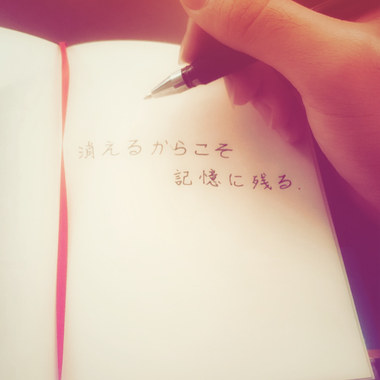 消えるからこそ
記憶に残る.